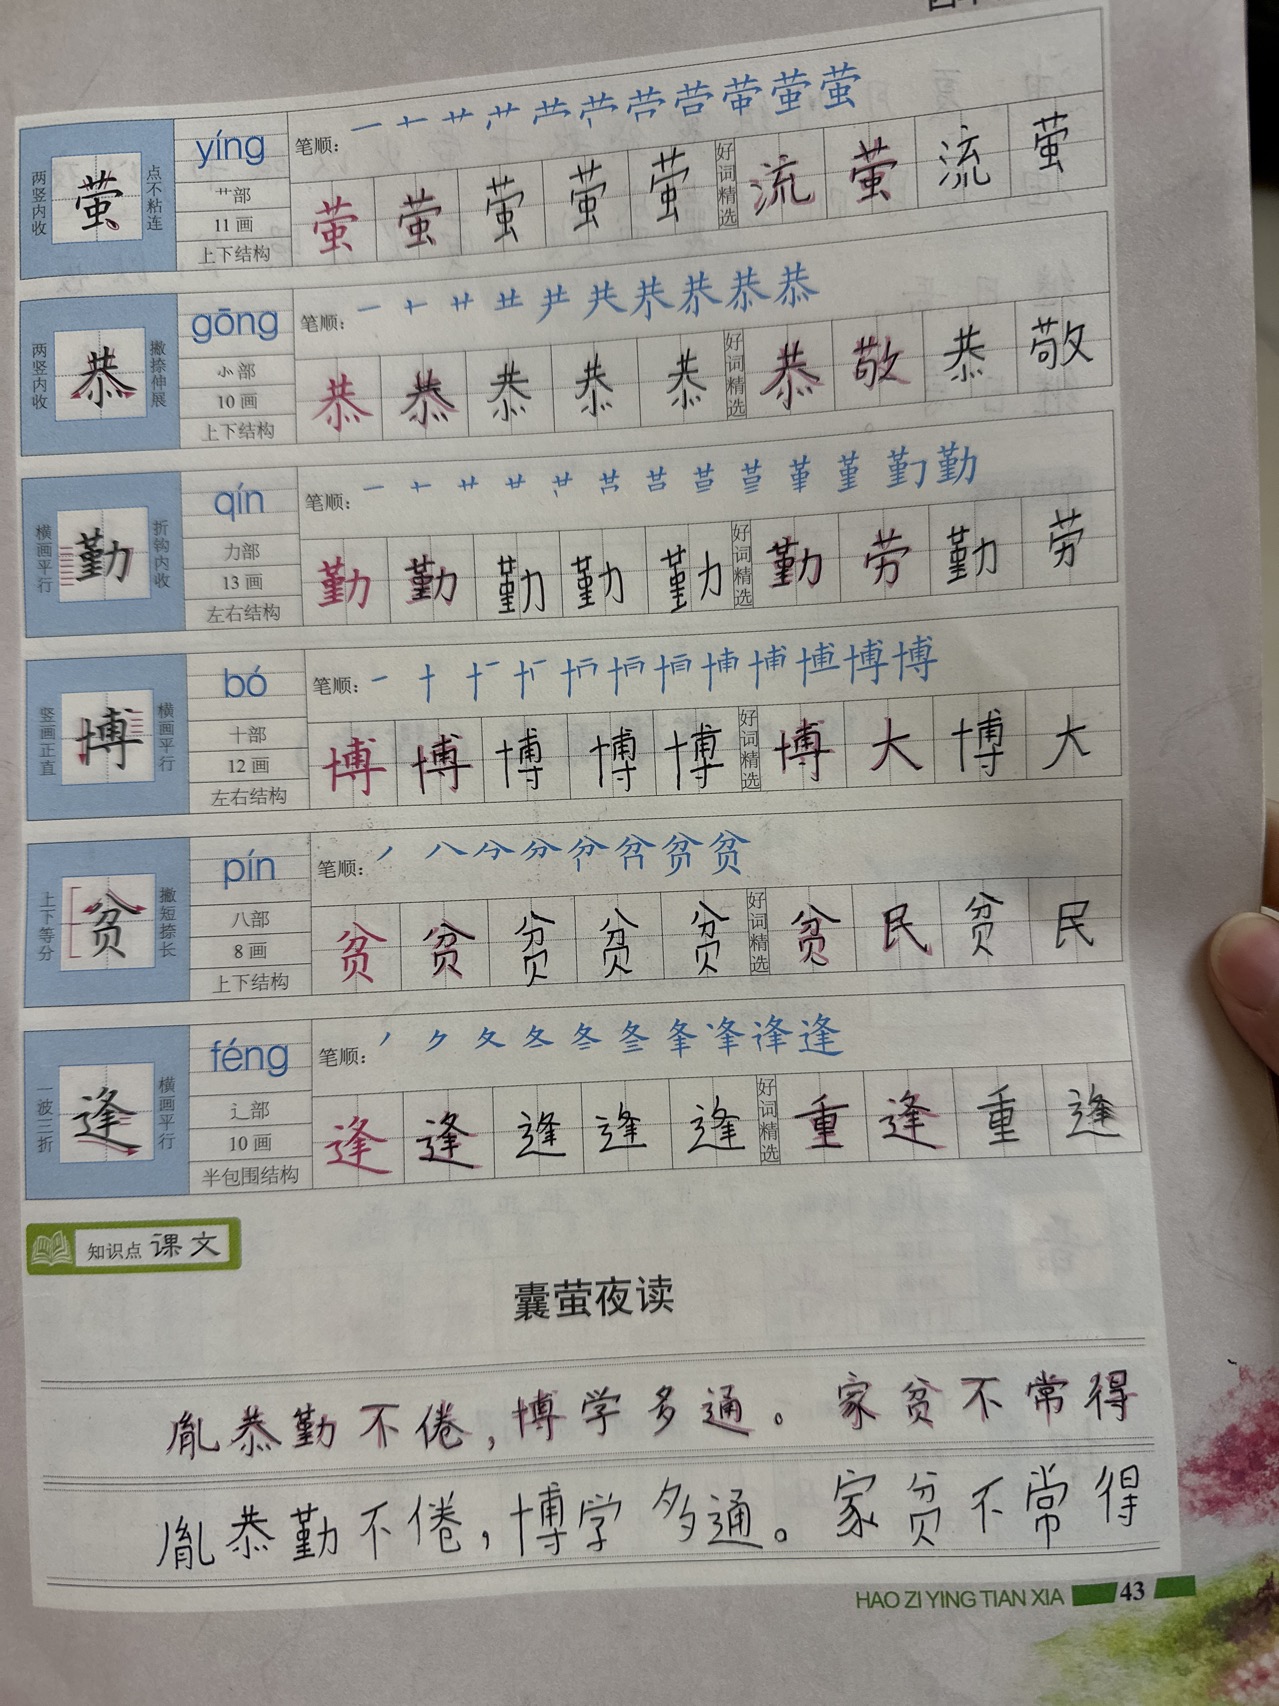 两竖内收 萤 点不粘连
yíng
艹部
11 画
上下结构
笔顺：
萤 萤 萤 萤 萤 好词精选 流 萤 流 萤
两竖内收 恭 撇捺伸展
gōng
⺗部
10 画
上下结构
笔顺：
恭 恭 恭 恭 恭 好词精选 恭 敬 恭 敬
横画平行 勤 折钩内收
qín
力部
13 画
左右结构
笔顺：
勤 勤 勤 勤 勤 好词精选 勤 劳 勤 劳
竖画正直 博 横画平行
bó
十部
12 画
左右结构
笔顺：
博 博 博 博 博 好词精选 博 大 博 大
上下等分 贫 撇短捺长
pín
八部
8 画
上下结构
笔顺：
贫 贫 贫 贫 贫 好词精选 贫 民 贫 民
一波三折 逢 横画平行
féng
辶部
10 画
半包围结构
笔顺：
逢 逢 逢 逢 逢 好词精选 重 逢 重 逢
知识点 课文
囊萤夜读
胤恭勤不倦，博学多通。家贫不常得
胤恭勤不倦，博学多通。家贫不常得
HAO ZI YING TIAN XIA 43